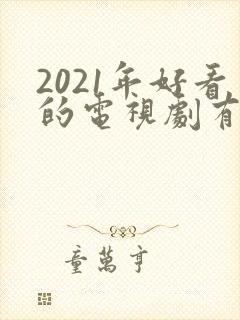 2021年好看
的電視劇有
童萬亨